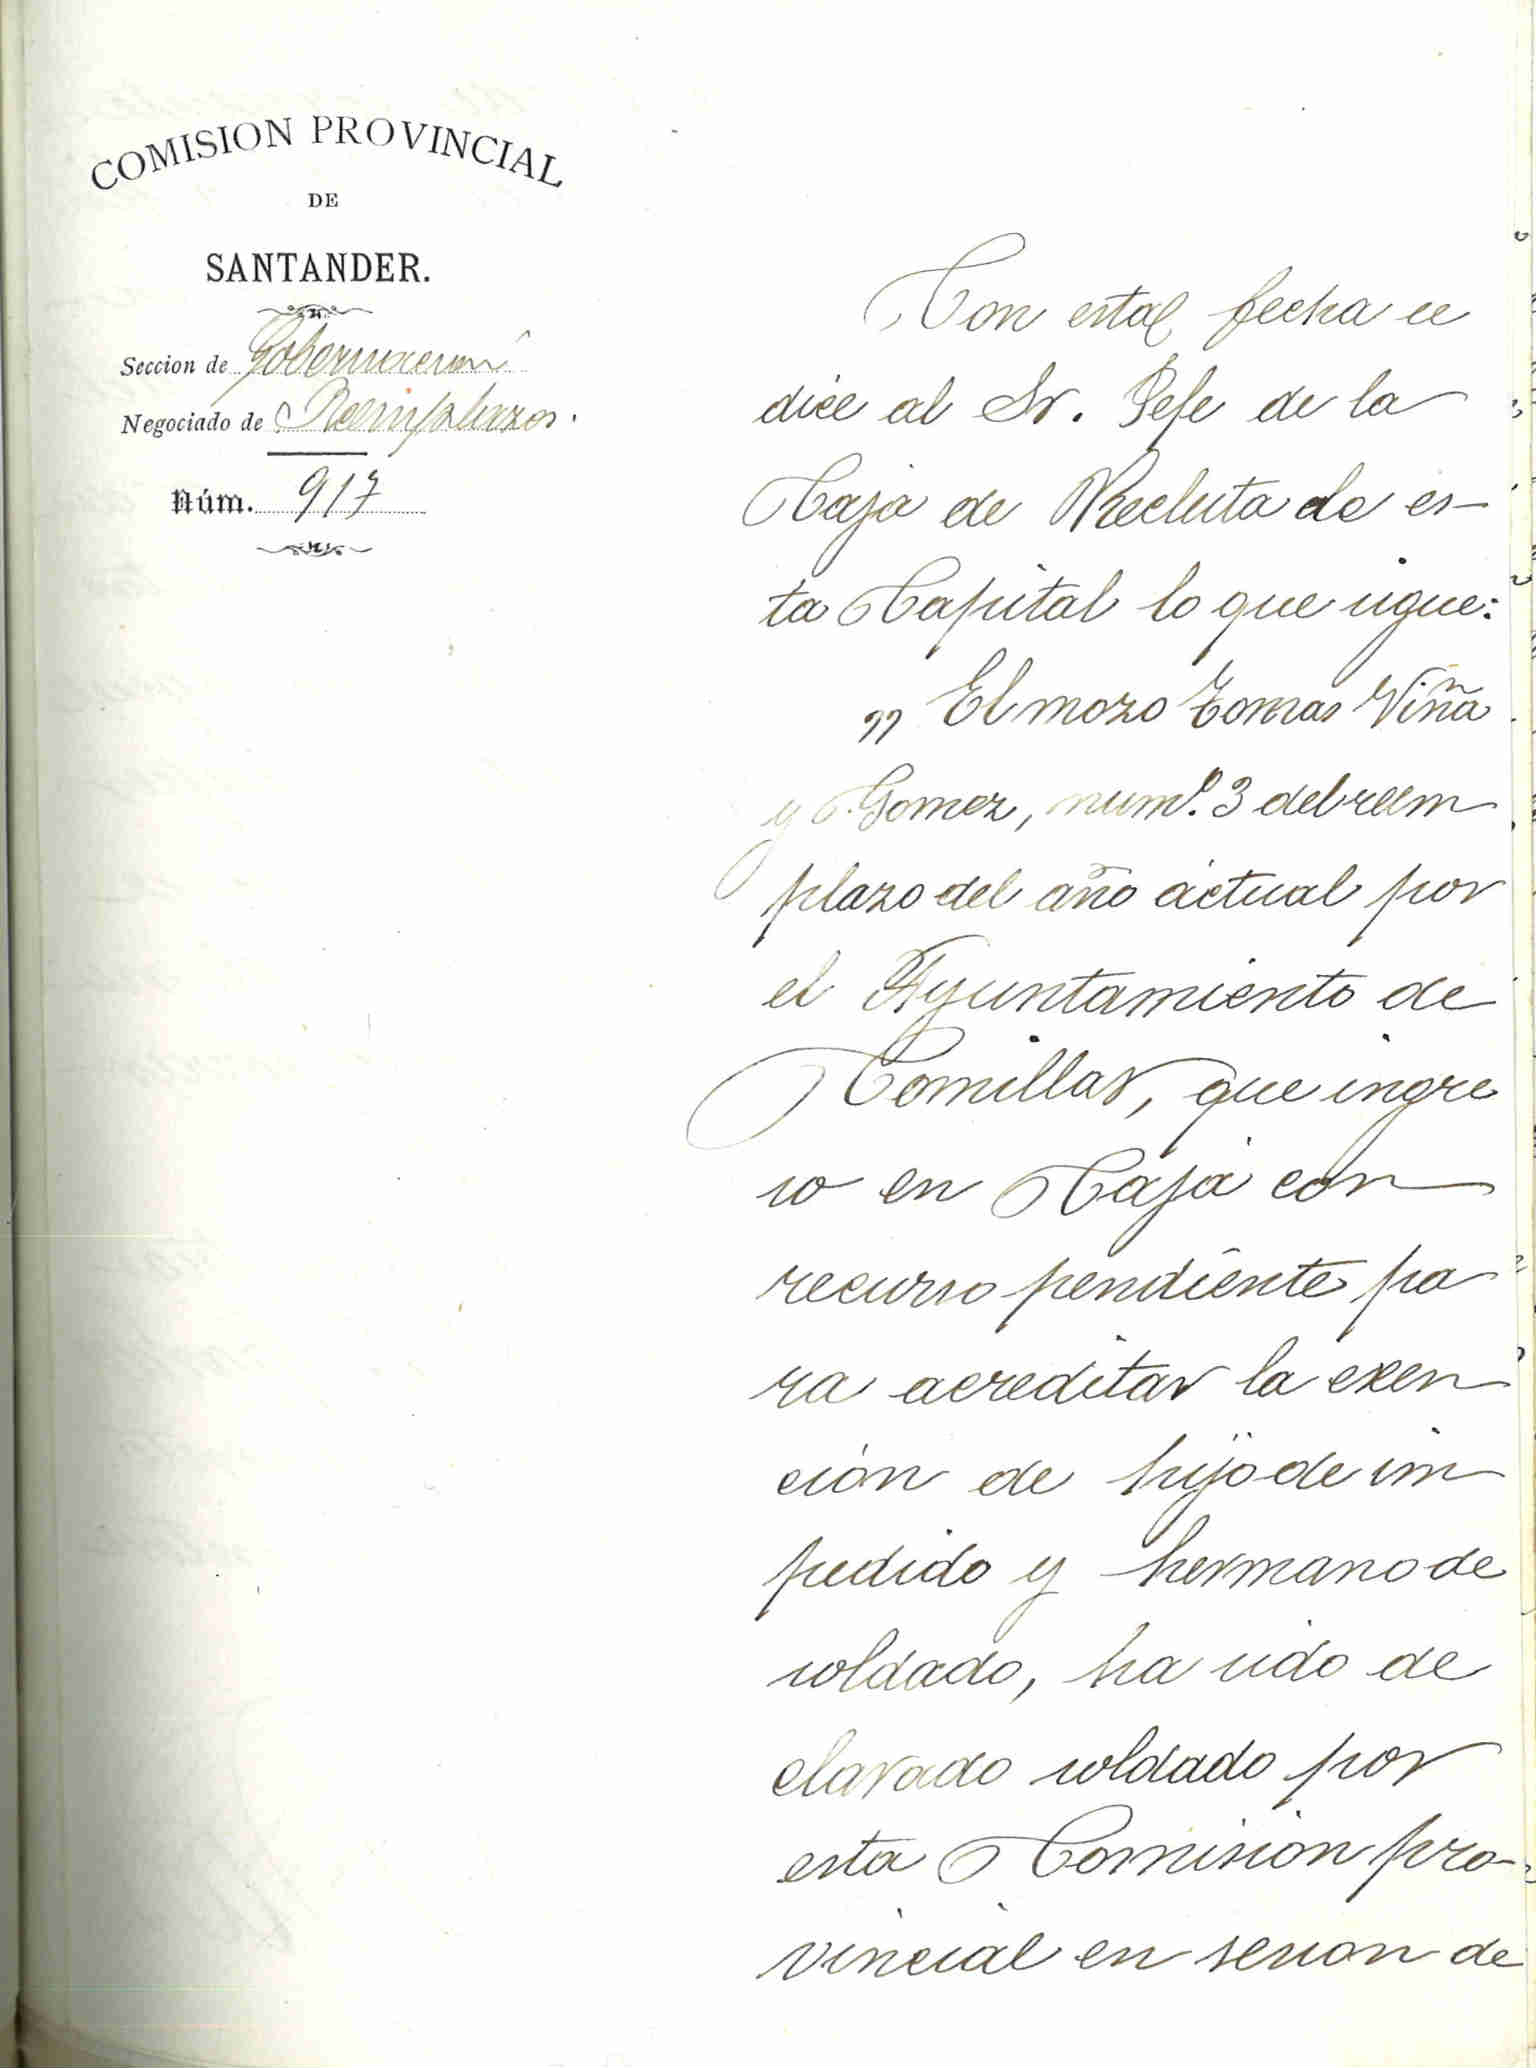 COMISION PROVINCIAL
DE
SANTANDER.
Seccion de Gobernacion
Negociado de Reemplazos.
Núm. 917
Con esta fecha se
dice al Sr. Jefe de la
Caja de Recluta de es-
ta Capital lo que sigue:
" El mozo Tomas Viña
y Gomez, numº. 3 del reem
plazo del año actual por
el Ayuntamiento de
Comillas, que ingre
só en Caja con
recurso pendiente pa
ra acreditar la exen
ción de hijo de im
pedido y hermano de
soldado, ha sido de
clarado soldado por
esta Comision pro-
vincial en sesion de